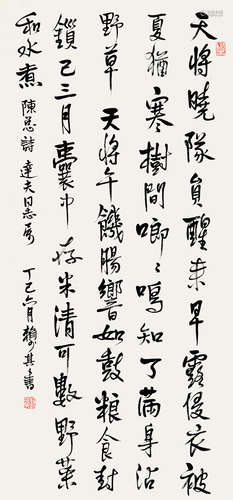 天将曉隊員醒来早露侵衣被
夏猶寒樹間唧々鳴知了滿身沾
野草 天将午饑腸響如鼓粮食封
鎖已三月囊中存米清可數野菜
和水煮 陳总詩 達夫同志属 丁巳六月賴少其書